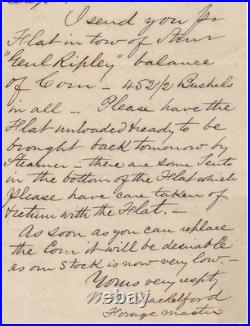 I send you pr
Flat in tow of Stmr
"Genl Ripley" balance
of Corn - 452 1/2 Bushels
in all - Please have the
Flat unloaded & ready to be
brought back tomorrow by
Steamer - there are some Tents
in the bottom of the Flat which
Please have care taken of
& return with the Flat. -
As soon as you can replace
the Corn it will be desirable
as our Stock is now very low. -
Yours very resptly
Shackelford
Forage master